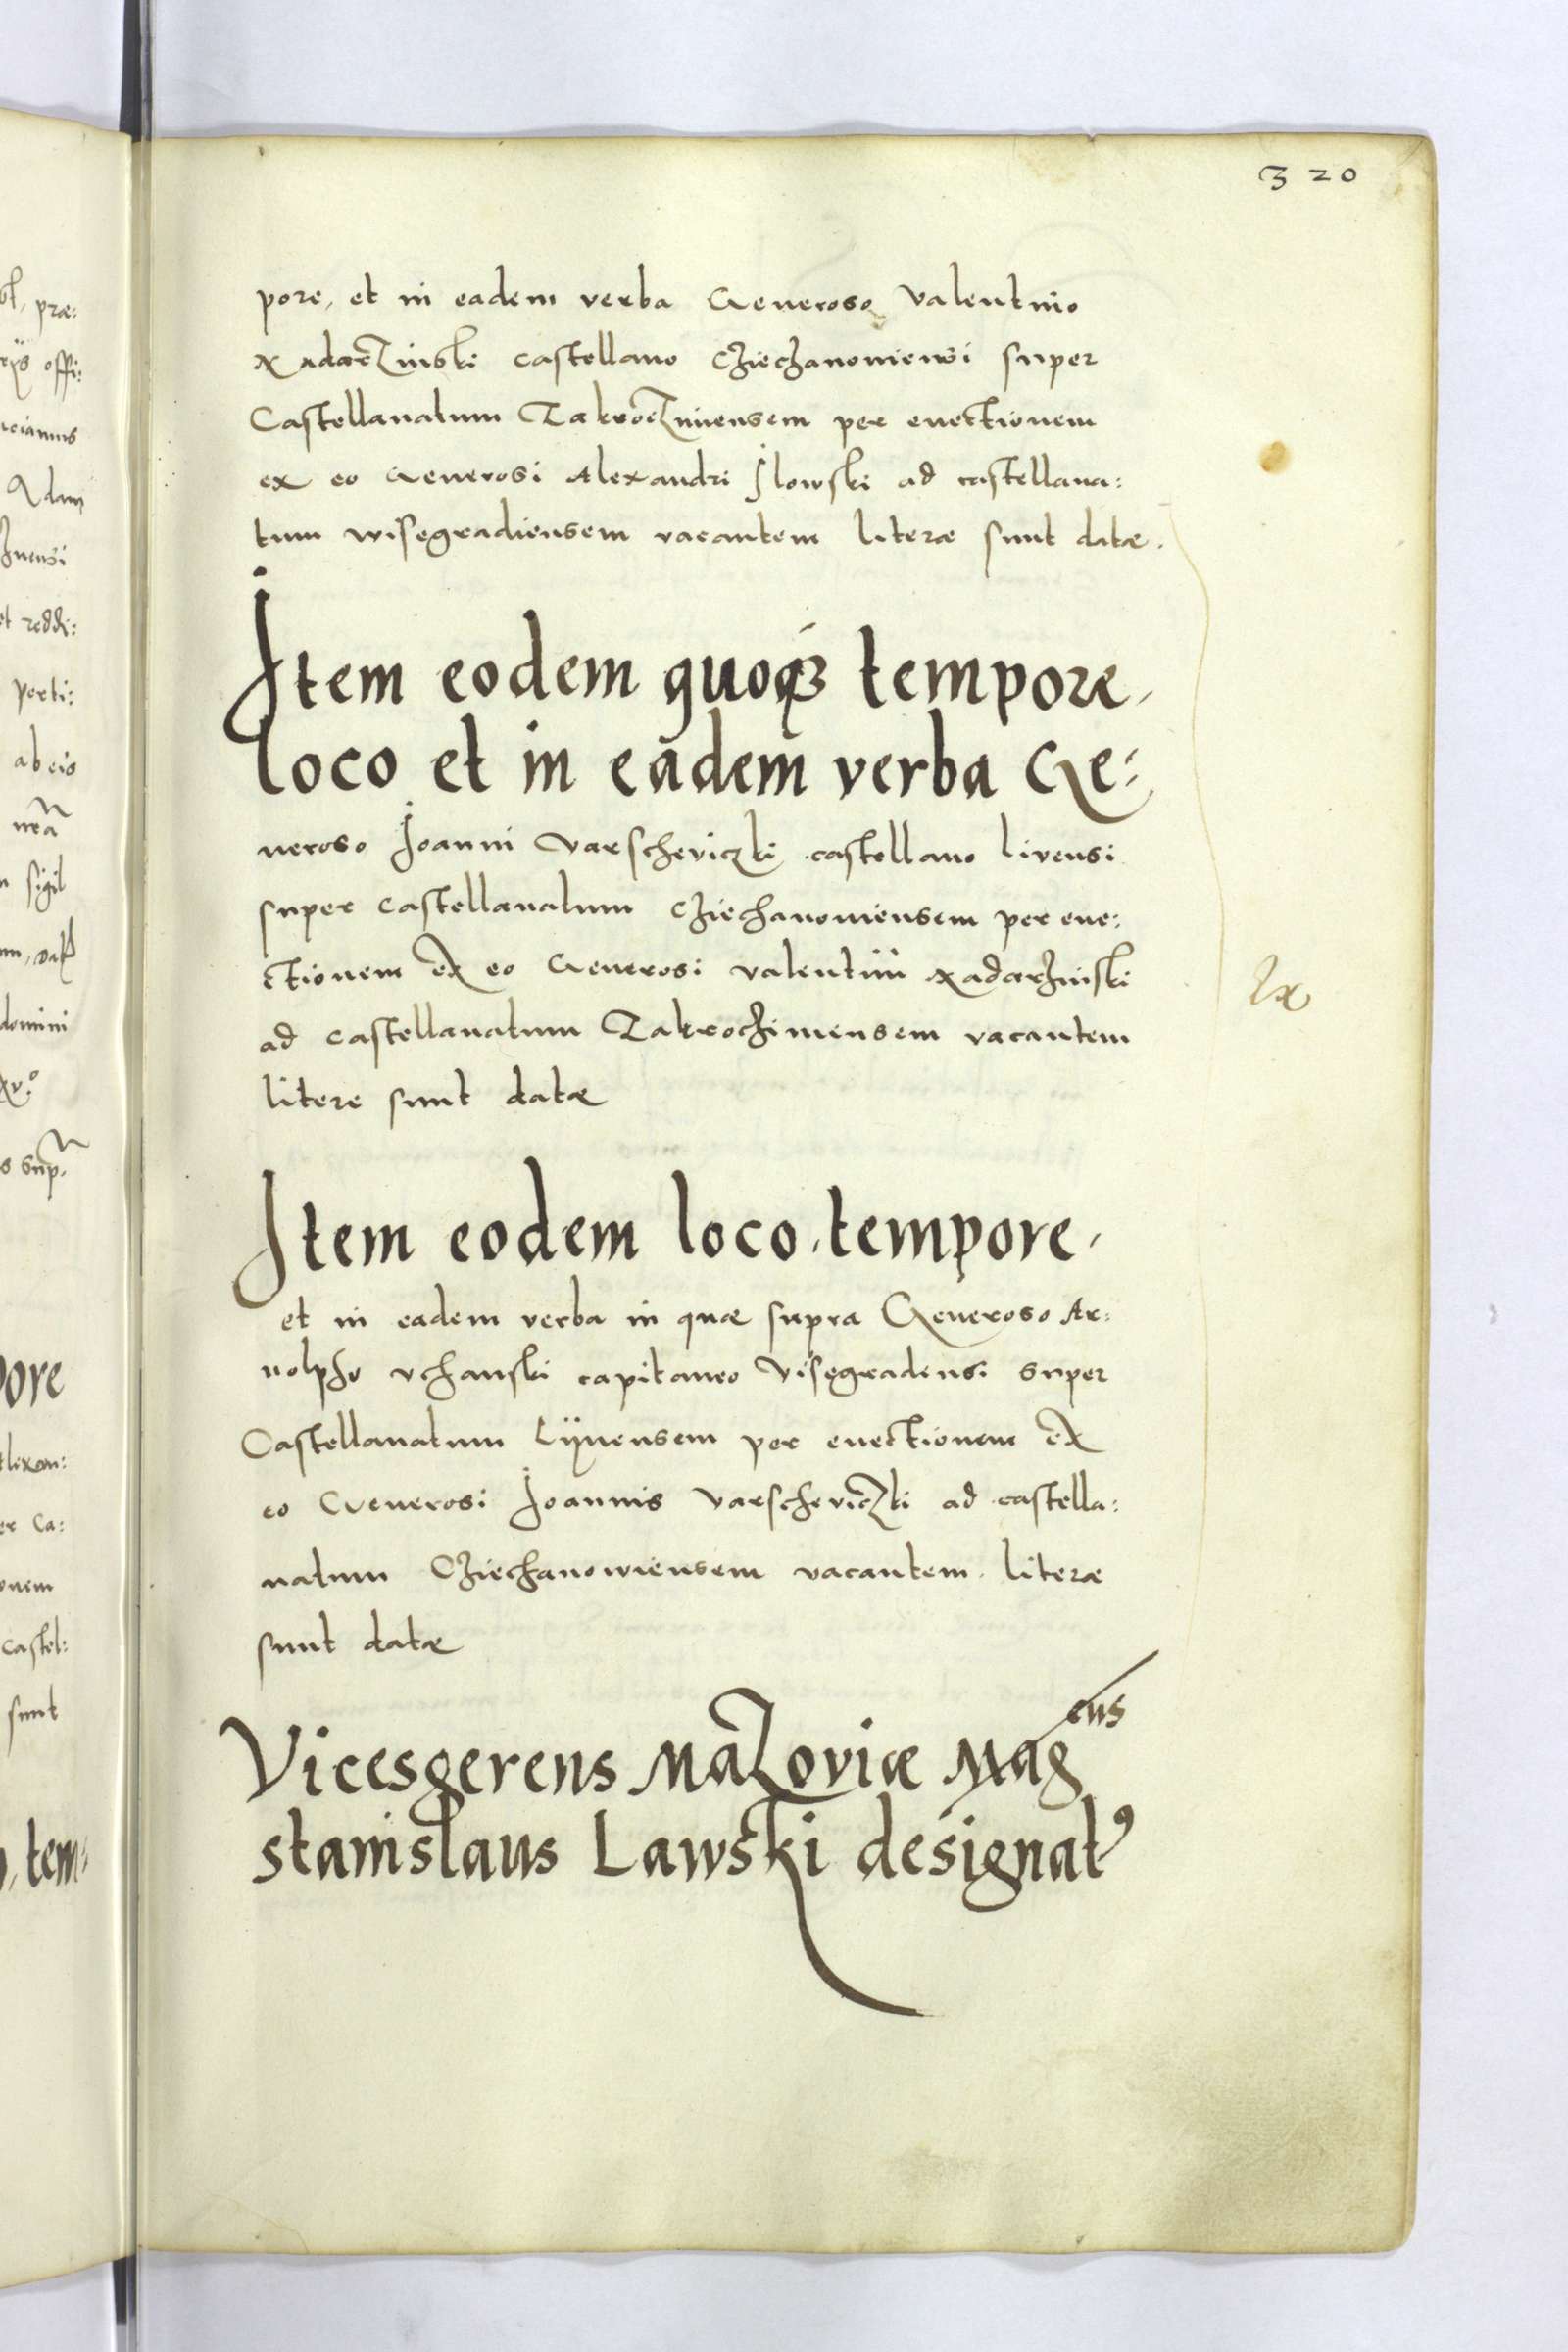 320
pore, et in eadem verba Generoso Valentino
Nadarzinski castellano Cziechanoviensi super
Castellanatum Zakroczimiensem per evectionem
ex eo Generosi Alexandri Ilowski ad castellana:
tum wisegradiensem vacantem literæ sunt datæ.
Item eodem quoqз tempore,
loco et in eadem verba Ge:
neroso Joanni Varscheviczki castellano livensi
super castellanatum Cziechanoviensem per eve:
ctionem ex eo Generosi Valentini Nadarzinski
ad castellanatum Zakrochimensem vacantem
litere sunt datæ
Item eodem loco, tempore,
et in eadem verba in quæ supra Generoso Ar:
nolpho Vchanski capitaneo Visegradensi super
Castellanatum Lijvensem per evectionem ex
eo Generosi Joannis Varscheviczki ad castella:
natum Cziechanowiensem vacantem, literæ
sunt datæ
Vicesgerens Mazoviæ Mag^cus
stanislaus Lawski designatꝰ